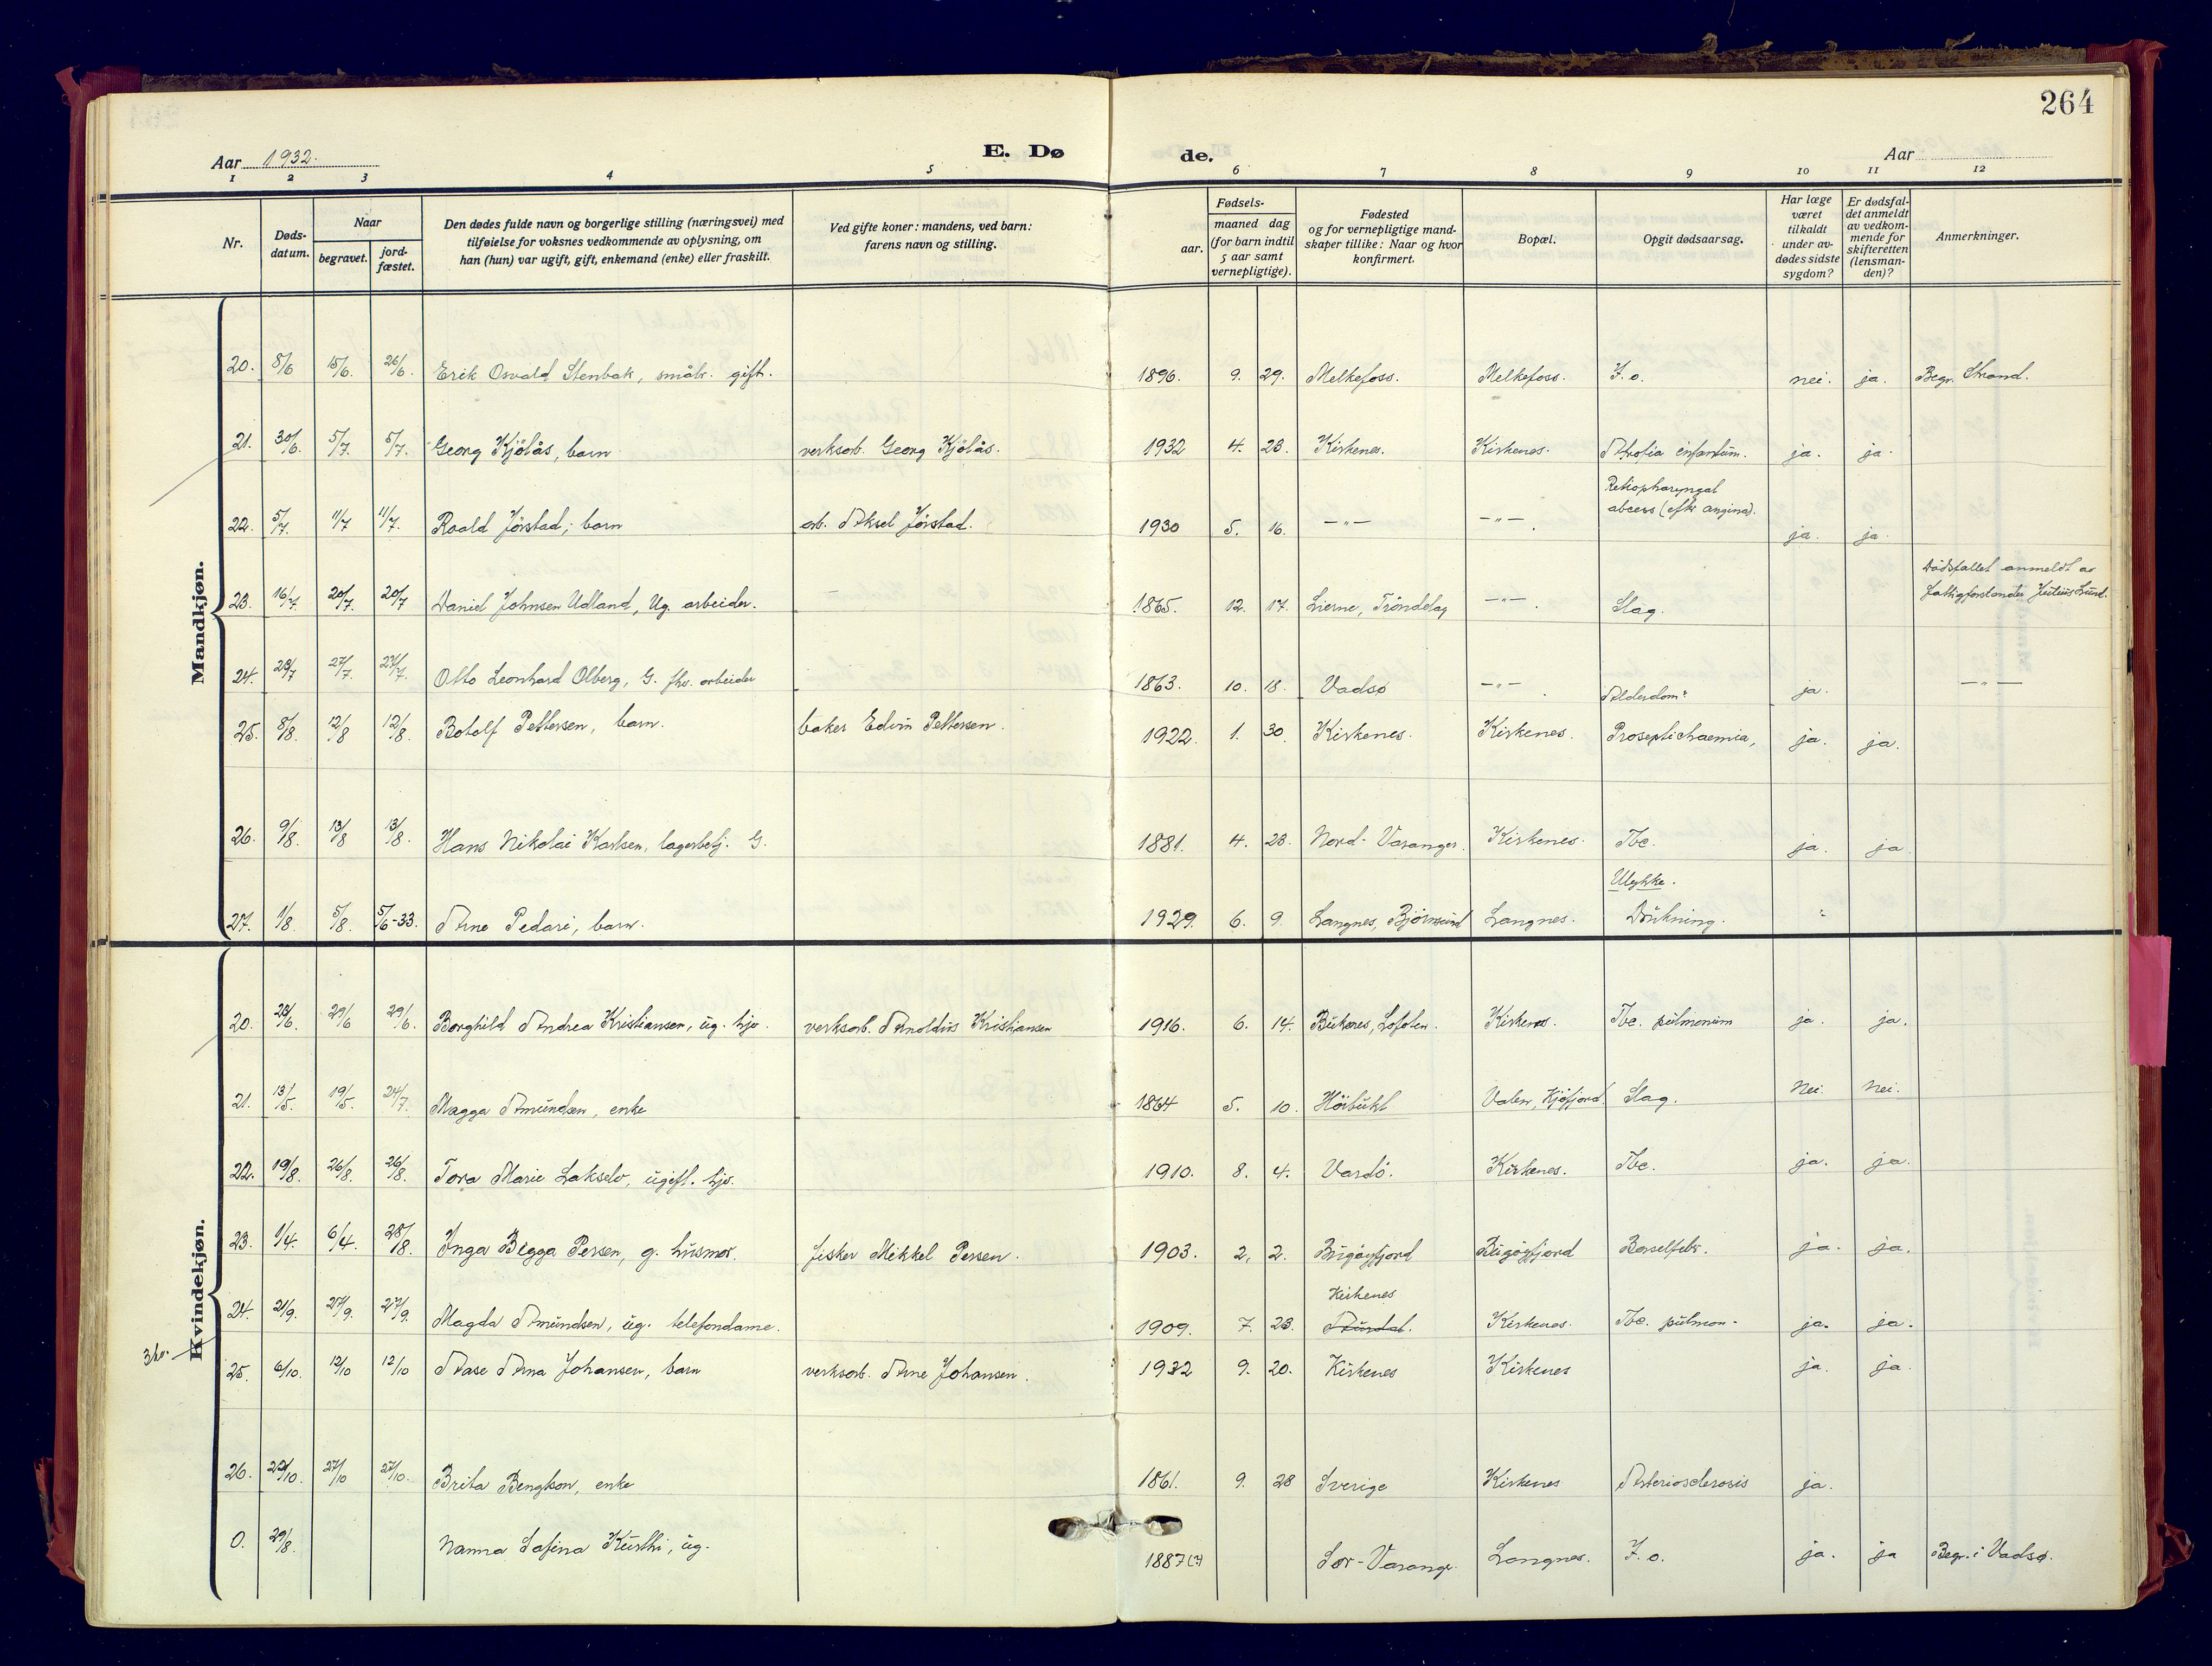 264
Aar 1932.
E. Dø de.
Aar
1 2 3 4 5 6 7 8 9 10 11 12
Nr.
Døds-
datum.
Naar
begravet.
jord-
fæstet.
Den dødes fulde navn og borgerlige stilling (næringsvei) med
tilføielse for voksnes vedkommende av oplysning, om
han (hun) var ugift, gift, enkemand (enke) eller fraskilt.
Ved gifte koner: mandens, ved barn:
farens navn og stilling.
Fødsels-
aar.
maaned dag
(for barn indtil
5 aar samt
vernepligtige).
Fødested
og for vernepligtige mand-
skaper tillike: Naar og hvor
konfirmert.
Bopæl.
Opgit dødsaarsag.
Har læge
været
tilkaldt
under av-
dødes sidste
sygdom?
Er dødsfal-
det anmeldt
av vedkom-
mende for
skifteretten
(lensman-
den)?
Anmerkninger.
Mandkjøn.
20. 8/6 15/6. 26/6. Erik Osvald Stenbak, småbr. gift. 1896. 9. 29. Melkefoss. Melkefoss. F. o. nei. ja. Begr. Strand.
21. 30/6. 5/7. 5/7. Georg Kjölås, barn verksarb. Georg Kjölås. 1932 4. 23. Kirkenes. Kirkenes. Atrofia infantum. ja. ja.
Retiopharyngal
abcess (eftr angina).
22. 5/7. 11/7 11/7. Roald Jörstad, barn arb. Aksel Jörstad. 1930 5. 16. —"— —"—. ja. ja.
Dødsfallet anmeldt av
fattigforstander Julius Lund.
23. 16/7. 20/7. 20/7 Daniel Johnsen Udland, Ug. arbeider. — 1865. 12. 17. Lierne, Tröndelag —"—. Slag.
24. 23/7 27/7. 27/7. Otto Leonhard Olberg, G. fhv. arbeider 1863. 10. 18. Vadsö —"—. Alderdom: ja. —"—
25. 8/8. 12/8 12/8. Botolf Pettersen, barn. baker Edvin Pettersen. 1922. 1. 30. Kirkenes. Kirkenes. Proseptichaemia, ja. ja.
26. 9/8. 13/8 13/8. Hans Nikolai Karlsen, lagerbetj. G. 1881. 4. 23. Nord-Varanger. Kirkenes. Tbc. ja. ja
Ulykke.
27. 1/8. 5/8. 5/6-33. Arne Pedari, barn. 1929. 6. 9. Langnes, Bjørnsund Langnes. Drukning. "
Kvindekjøn.
20. 23/6. 29/6 29/6. Borghild Andrea Kristiansen, ug. hjv. verksarb. Arnoldus Kristiansen 1916. 6. 14. Buksnes, Lofoten. Kirkenes. Tbc. pulmonum ja. ja.
21. 13/5. 19/5. 24/7. Magga Amundsen, enke 1864 5. 10. Hörbukt Valen, Kjöfjord. Slag. Nei. Nei.
22. 19/8. 26/8. 26/8. Tora Marie Lakselv, ugift. hjv. 1910. 8. 4. Vardö. Kirkenes. Tbc. ja. ja.
23. 1/4. 6/4. 28/8. Inga Bigga Persen, g. husmor. fisker Mikkel Persen. 1903. 2. 2. Bugöyfjord Bugöyfjord Barselfebr. ja. ja.
Kirkenes
24. 21/9. 27/9. 27/9. Magda Amundsen, ug. telefondame. 1909. 7. 23. Aurdal. Kirkenes. Tbc. pulmon- ja. ja.
25. 6/10. 12/10 12/10 Aase Arna Johansen, barn verksarb. Arne Johansen. 1932 9. 20. Kirkenes Kirkenes ja. ja.
26. 22/10. 27/10 27/10. Brita Bengtson, enke 1861. 9. 28 Sverige Kirkenes Arteriosclerosis ja.
0. 29/8. Nanna Safina Kurthi, ug. 1887(?) Sør-Varanger. Langnes. F. o. ja. ja Begr. i Vadsø.